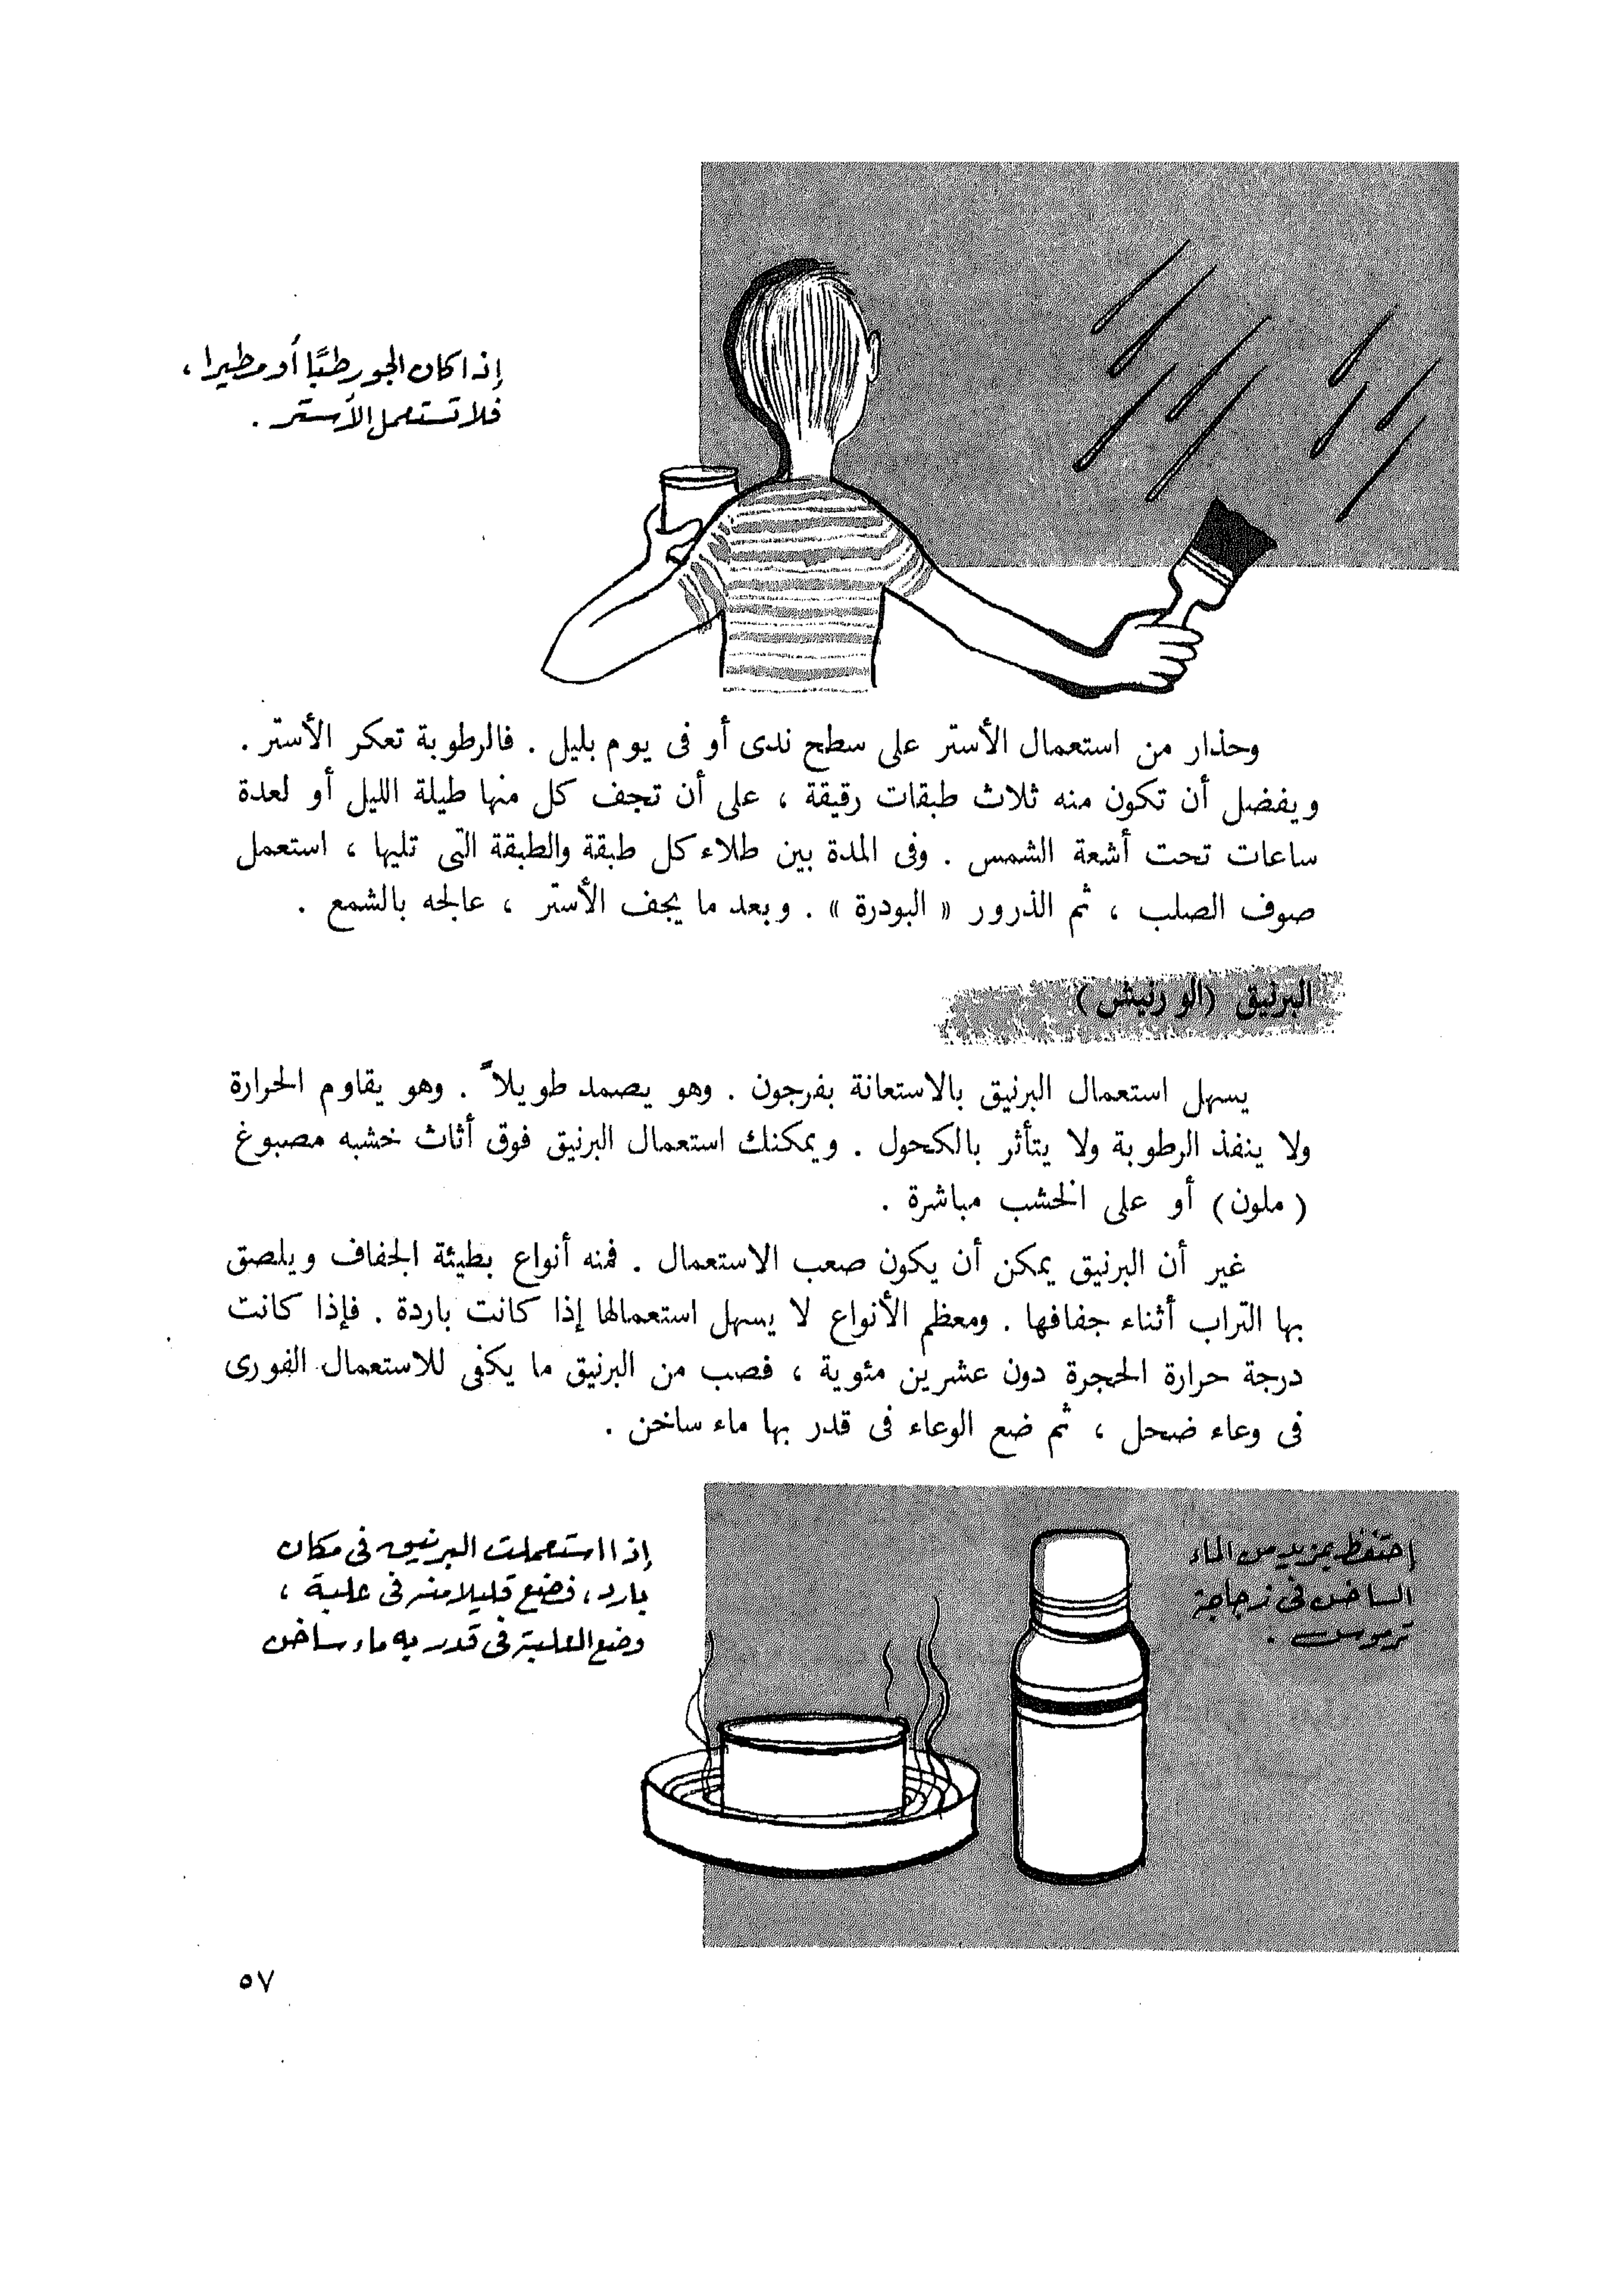 إذا كان الجو رطبًا أو مطيرا ،
فلا تستعمل الأستر .
وحذار من استعمال الأستر على سطح ندى أو فى يوم بليل . فالرطوبة تعكر الأستر .
ويفضل أن تكون منه ثلاث طبقات رقيقة ، على أن تجف كل منها طيلة الليل أو لعدة
ساعات تحت أشعة الشمس . وفى المدة بين طلاء كل طبقة والطبقة التى تليها ، استعمل
صوف الصلب ، ثم الذرور « البودرة » . وبعد ما يجف الأستر ، عالجه بالشمع .
البرنيق (الورنيش)
يسهل استعمال البرنيق بالاستعانة بفرجون . وهو يصمد طويلاً . وهو يقاوم الحرارة
ولا ينفذ الرطوبة ولا يتأثر بالكحول . ويمكنك استعمال البرنيق فوق أثاث خشبه مصبوغ
( ملون ) أو على الخشب مباشرة .
غير أن البرنيق يمكن أن يكون صعب الاستعمال . فمنه أنواع بطيئة الجفاف ويلصق
بها التراب أثناء جفافها . ومعظم الأنواع لا يسهل استعمالها إذا كانت باردة . فإذا كانت
درجة حرارة الحجرة دون عشرين مئوية ، فصب من البرنيق ما يكفى للاستعمال الفورى
فى وعاء ضحل ، ثم ضع الوعاء فى قدر بها ماء ساخن .
إحتفظ بمزيد من الماء
الساخن فى زجاجة
ترموس .
إذا استعملت البرنيق فى مكان
بارد ، فضع قليلا منه فى علبة ،
وضع العلبة فى قدر به ماء ساخن
٥٧